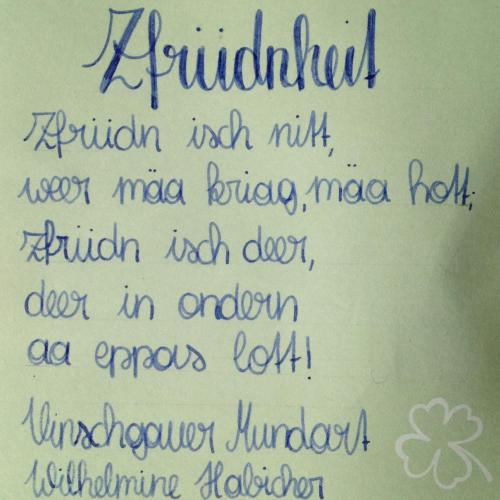 Zfriidnheit
Zfriidn isch nitt,
weer mäa kriag, mäa hott;
Zfriidn isch deer,
deer in ondern
aa eppas lott!
Vinschgauer Mundart
Wilhelmine Habicher